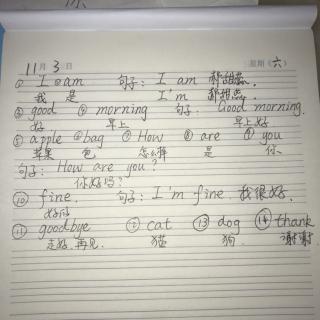 11月 3日 星期(六)
① I ② am 句子: I am
我 是 I'm
③ good ④ morning 句子: Good morning.
好 早上 早上好
⑤ apple ⑥ bag ⑦ How ⑧ are ⑨ you
苹果 包 怎么样 是 你
句子: How are you?
你好吗?
⑩ fine. 句子: I'm fine. 我很好.
好的
⑪ goodbye ⑫ cat ⑬ dog ⑭ thank
走好.再见 猫 狗 谢谢